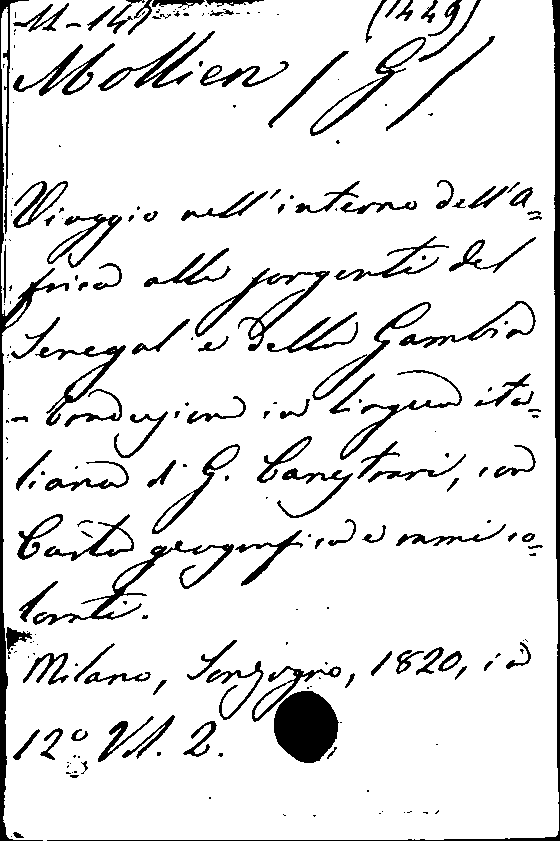 11-147 (1449)
Mollien (G)
Viaggio nell'interno dell'A=
frica alle sorgenti del
Senegal e della Gambia
- Traduzione in lingua ita=
liana di G. Canestrari, con
Carta geografica e rami co=
lorati.
Milano, Sonzogno, 1820, in
12º Vol. 2.